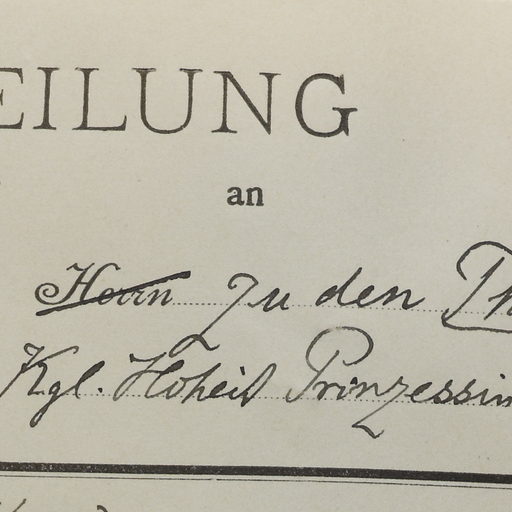 EILUNG
an
Herrn Zu den
Kgl. Hoheit Prinzessin